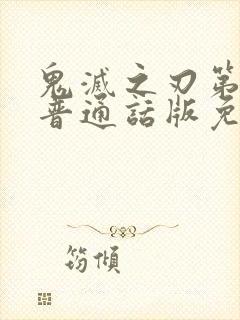 鬼滅之刃第
普通話版免
筠傾